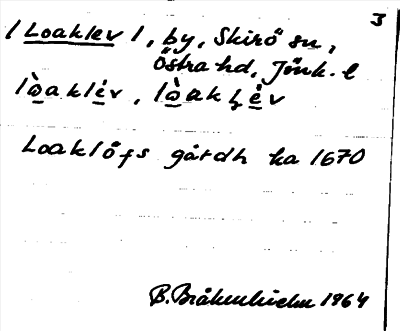 3
/Loaklev/, by, Skirö sn,
Östra hd, Jönk. l
lòaklév, lòakl̥év
Loaklöfs gårdh ka 1670
B. Bråkenhielm 1964